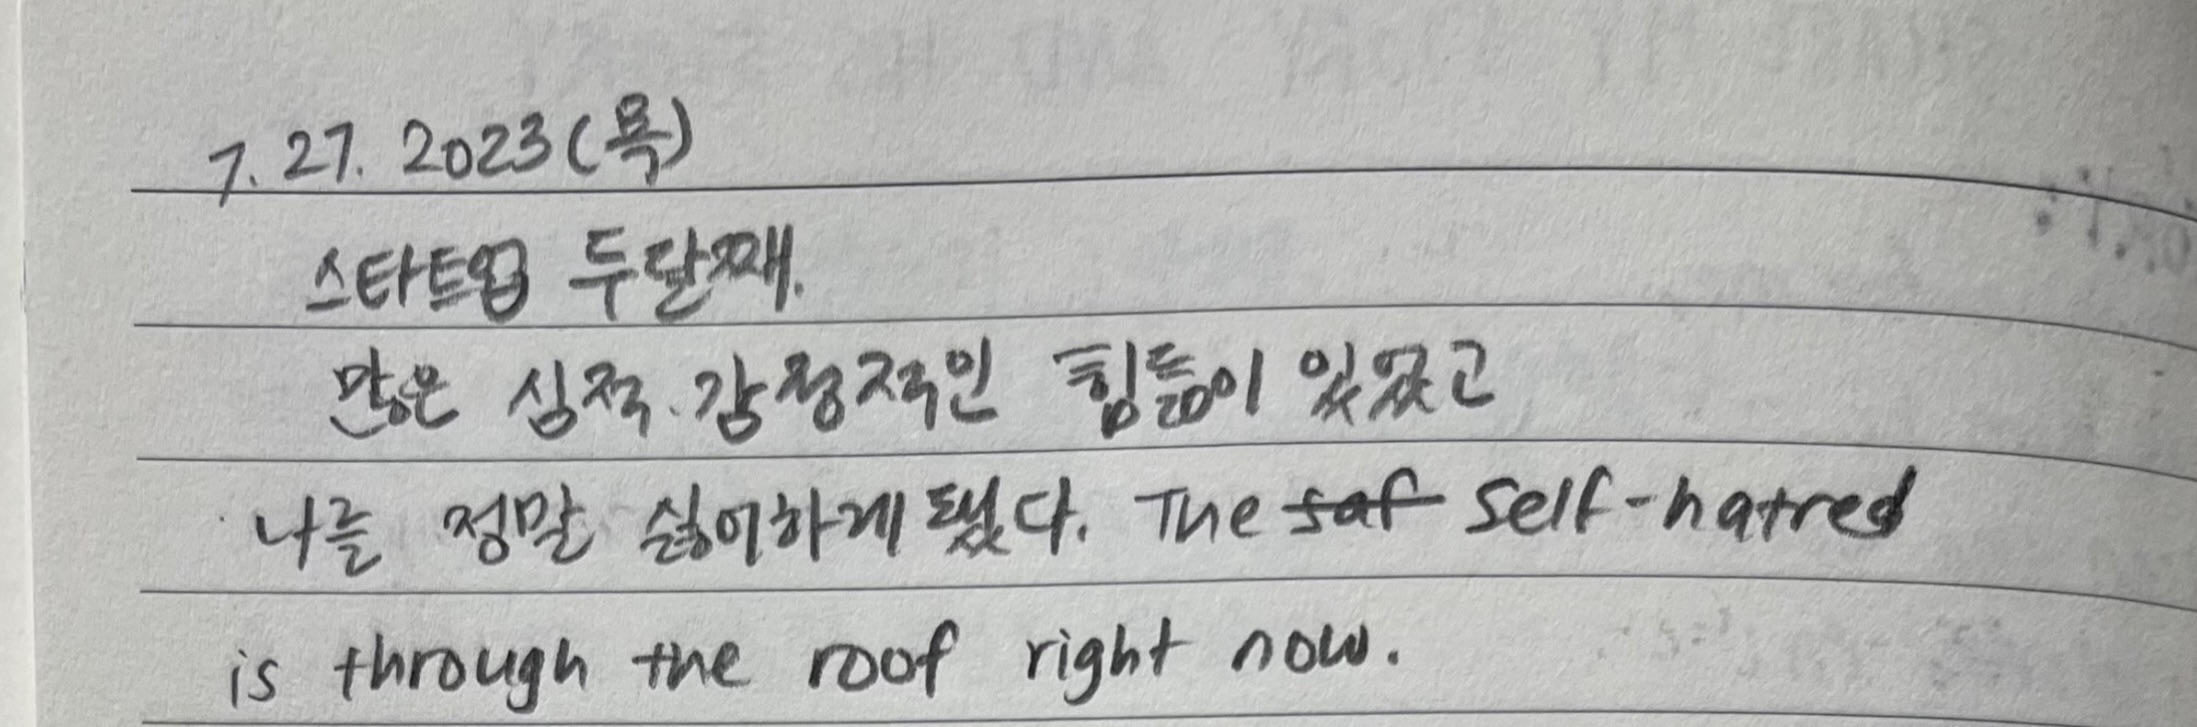 7. 27. 2023 (목)
스타트업 두달째.
많은 심적.감정적인 힘듦이 있었고
나를 정말 싫어하게 됐다. The saf self-hatred
is through the roof right now.